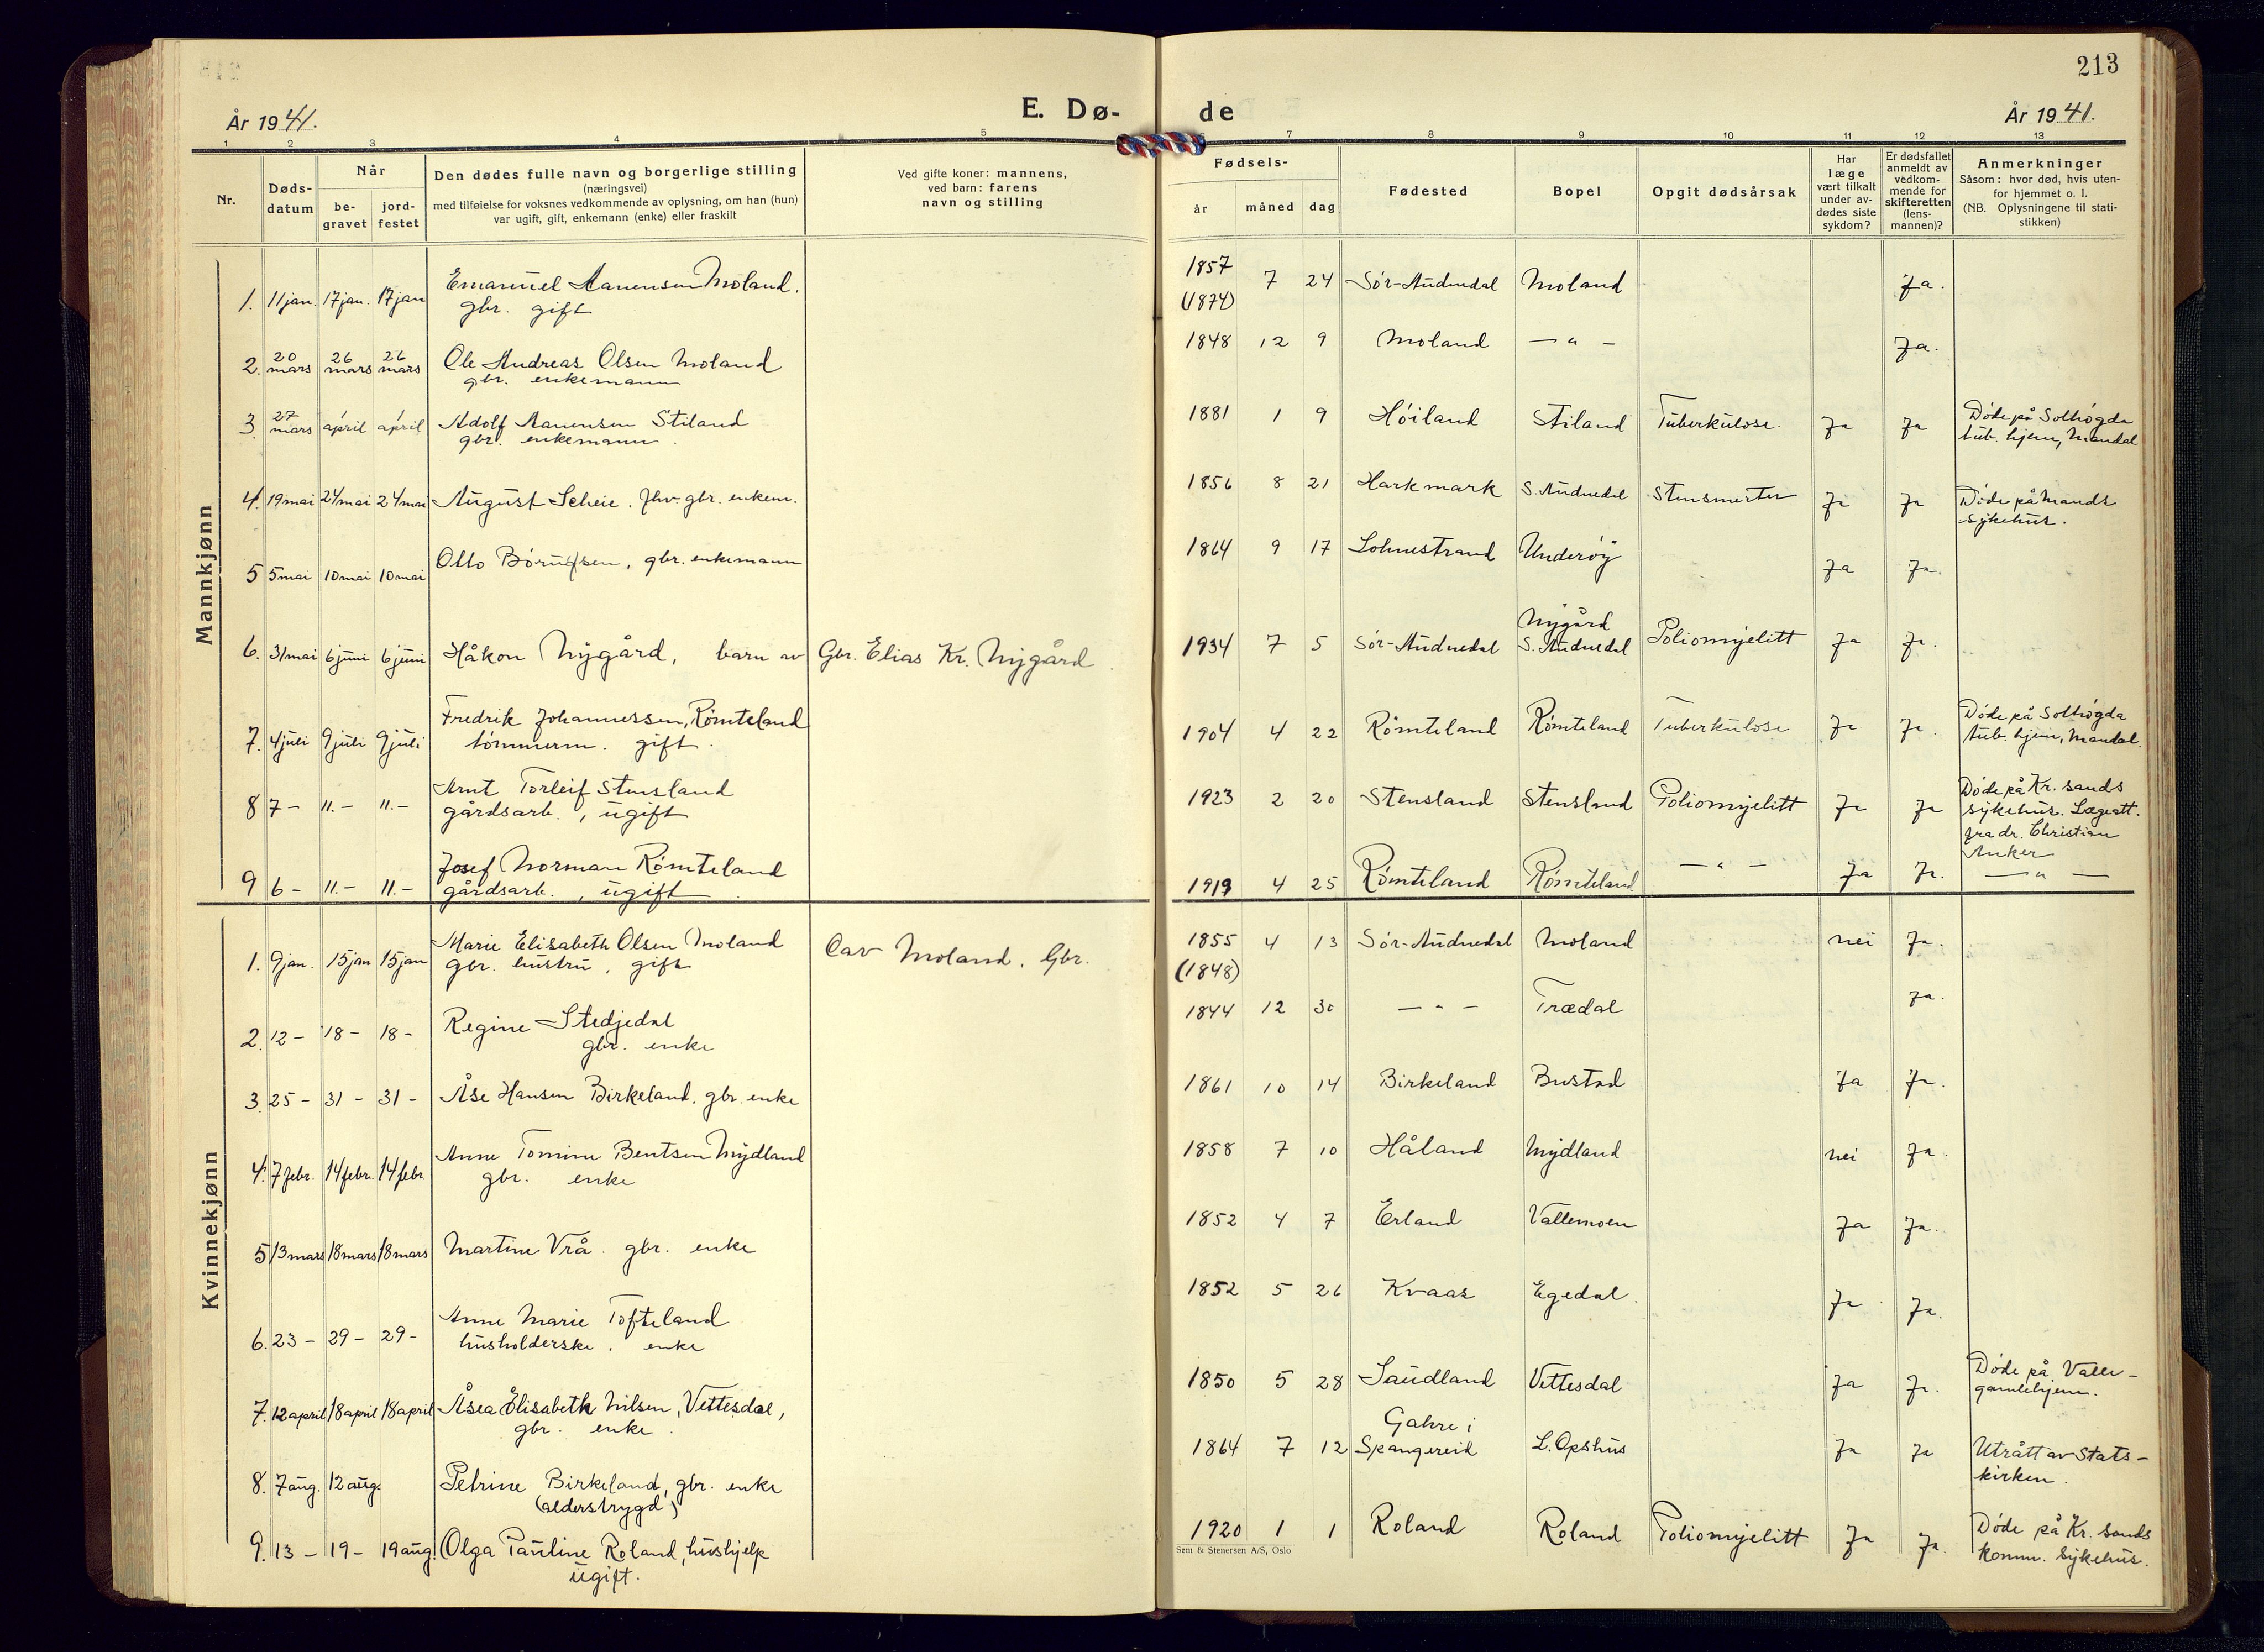 213
År 1941.
E. Dø-
de
År 1941.
1 2 3 4 5 6 7 8 9 10 11 12 13
Nr.
Døds-
datum
Når
be-
gravet
jord-
festet
Den dødes fulle navn og borgerlige stilling
(næringsvei)
med tilføielse for voksnes vedkommende av oplysning, om han (hun)
var ugift, gift, enkemann (enke) eller fraskilt
Ved gifte koner: mannens,
ved barn: farens
navn og stilling
Fødsels-
år
måned
dag
Fødested
Bopel
Opgit dødsårsak
Har
læge
vært tilkalt
under av-
dødes siste
sykdom?
Er dødsfallet
anmeldt av
vedkom-
mende for
skifteretten
(lens-
mannen)?
Anmerkninger
Såsom: hvor død, hvis uten-
for hjemmet o. l.
(NB. Oplysningene til stati-
stikken)
Mannkjønn
1. 11 jan. 17 jan. 17 jan Emanuel Aanensen Moland. 1857 7 24 Sør-Audnedal Moland Ja.
gbr. gift (1874)
2. 20 mars 26 mars 26 mars Ole Andreas Olsen Moland 1848 12 9 Moland — " — Ja.
gbr. enkemann
3. 27 mars 1 april 1 april Adolf Aanensen Stiland 1881 1 9 Høiland Stiland Tuberkulose. Ja Ja Døde på Solhøgda
gbr. enkemann. tub. hjem, Mandal
4. 19 mai 24 mai 24 mai August Scheie. fhv. gbr. enkem. 1856 8 21 Harkmark S. Audnedal Stensmerter Ja Ja Døde på Mandals
sykehus.
5 5 mai 10 mai 10 mai Otto Børufsen, gbr. enkemann 1864 9 17 Lohnestrand Underøy Ja Ja.
6. 31 mai 6 juni 6 juni Håkon Nygård, barn av Gbr. Elias Kr. Nygård. 1934 7 5 Sør-Audnedal Nygård
S. Audnedal Poliomyelitt Ja Ja.
7. 4 juli 9 juli 9 juli Fredrik Johannessen, Rømteland 1904 4 22 Rømteland Rømteland Tuberkulose Ja Ja. Døde på Solhøgda
tømmerm. gift. tub. hjem, Mandal.
8 7 — 11. — 11. — Arnt Torleif Stensland 1923 2 20 Stensland Stensland Poliomyelitt Ja Ja Døde på Kr. sands
gårdsarb., ugift sykehus. Lægeatt.
fra dr. Christian
Anker
9 6 — 11. — 11. — Josef Norman Rømteland 1919 4 25 Rømteland Rømteland — " — Ja Ja. — " —
gårdsarb., ugift.
Kvinnekjønn
1. 9 jan. 15 jan 15 jan Marie Elisabeth Olsen Moland Oav Moland. Gbr. 1855 4 13 Sør-Audnedal Moland nei Ja.
gbr. hustru, gift (1848)
2. 12 — 18 — 18 — Regine Stedjedal 1844 12 30 — " — Trædal Ja.
gbr. enke
3. 25 — 31 — 31 — Åse Hansen Birkeland. gbr. enke 1861 10 14 Birkeland Bustad Ja Ja.
4. 7 febr. 14 febr. 14 febr. Anne Tomine Bentsen Mydland 1858 7 10 Håland Mydland nei Ja.
gbr. enke
5 13 mars 18 mars 18 mars Martine Vrå. gbr. enke 1852 4 7 Erland Vallemoen Ja Ja.
6. 23 — 29 — 29 — Anne Marie Tofteland 1852 5 26 Kvaas Egedal. Ja Ja.
husholderske. enke
7. 12 april 18 april 18 april Åsea Elisabeth Nilsen, Vettesdal, 1850 5 28 Saudland Vettesdal Ja Ja. Døde på Valle-
gbr. enke. gamlehjem.
8. 7 aug. 12 aug. Petrine Birkeland, gbr. enke 1864 7 12 Gahre i
Spangereid L. Opshus Ja Ja Utrått av Stats-
(alderstrygd) kirken.
9. 13 — 19 — 19 aug. Olga Pauline Roland, hushjelp 1920 1 1 Roland Roland Poliomyelitt Ja Ja. Døde på Kr. sands
ugift. komm. sykehus.
Sem & Stenersen A/S, Oslo